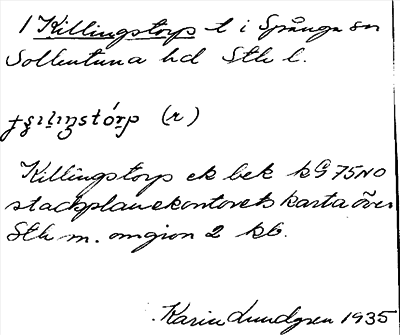 1 Killingstorp t i Spånga sn
Sollentuna hd Sth l.
(r)
Killingstorp ek bek kG 75NO
stadsplanekontorets karta över
Sth m. omgion 2 kb.
Karin Lundgren 1935